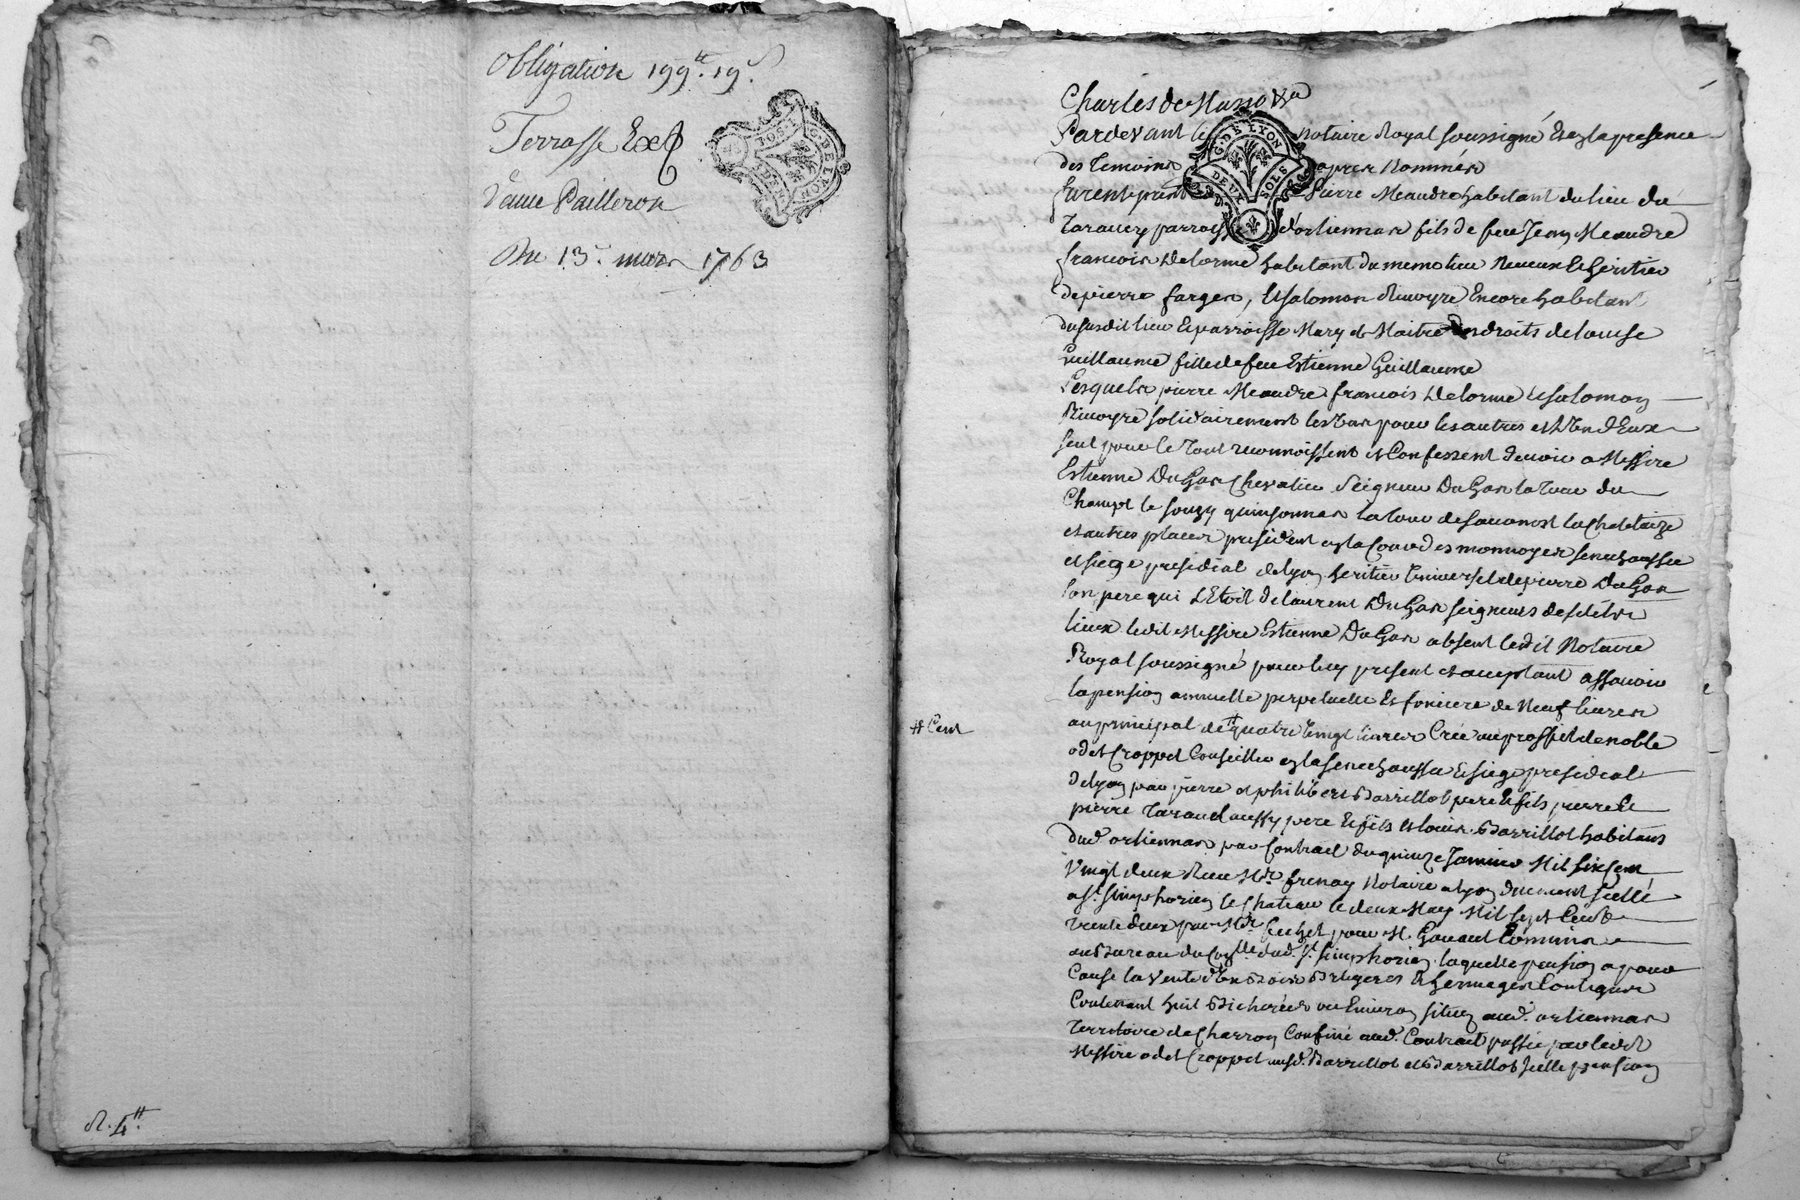 Obligation 199tt. 19s.
Terrasse Ex
d'anne Pailleron
Du 13e. mars 1763
G. DE LYON
DEUX SOLS
R. 4tt.
G. DE LYON
DEUX SOLS
Pardevant le notaire Royal soussigné Et en la presence
des Temoins apres Nommes
furent presents Pierre Meaudre habitant du lieu de
Taraney parroisse d'ortiennas fils de feu Jean Meaudre
francois Delorme habitant du meme lieu Neveux Et heritier
de pierre farges, Et salomon Rivoyre Encore habitant
du susdit lieu Et parroisse Mary et Maitre des droits de louise
Guillaume fille de feu Estienne Guillaume
Lesquels pierre Meaudre francois Delorme Et salomon
Rivoyre solidairement les uns pour les autres et L'un d'Eux
seul pour le Tout reconnoissent et Confessent devoir a Messire
Estienne DuGas Chevalier seigneur DuGas la Tour du
Champt le souzy quinsonnas la tour de savanost
et autres places president en la Cour des monnoyes senechaussée
et siege presidial de lyon heritier Universel de pierre DuGas
son pere qui L'Etoit de laurent DuGas seigneurs desdits
lieux ledit Messire Estienne DuGas absent ledit Notaire
Royal soussigné pour luy present et acceptant assavoir
la pension annuelle perpetuelle Et fonciere de Neuf livres
# Cent
au principal de # quatre vingt livres Creée au proffit de noble
odet Croppet Conseiller en la senechaussée Et siege presidial
de lyon par pierre et philibert Barrillot pere Et fils pierre Et
pierre pere Et fils et louis Barrillot habitans
dud. ortiennas par Contract du quinze Janvier Mil six Cent
Vingt deux Recu Me. frenay Notaire a lyon duement scellé
a st. simphorien le Chateau le deux May Mil sept Cent
trente deux par Mr. pour M. Commis
au Bureau du Conlle. dud. st. simphorien laquelle pension a pour
Cause la Vente d'un Bois Brugeres Et hermages Contigus
Contenant huit Bicherées ou Environ situez aud. ortiennas
Territoire de Charron Confiné aud. Contract passé par ledit
Messire odet Croppet ausd. Barrillot et Barrillot Jcelle pension